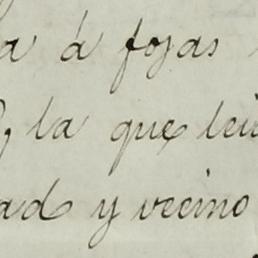 a á fojas
, la que leí
ad y vecino